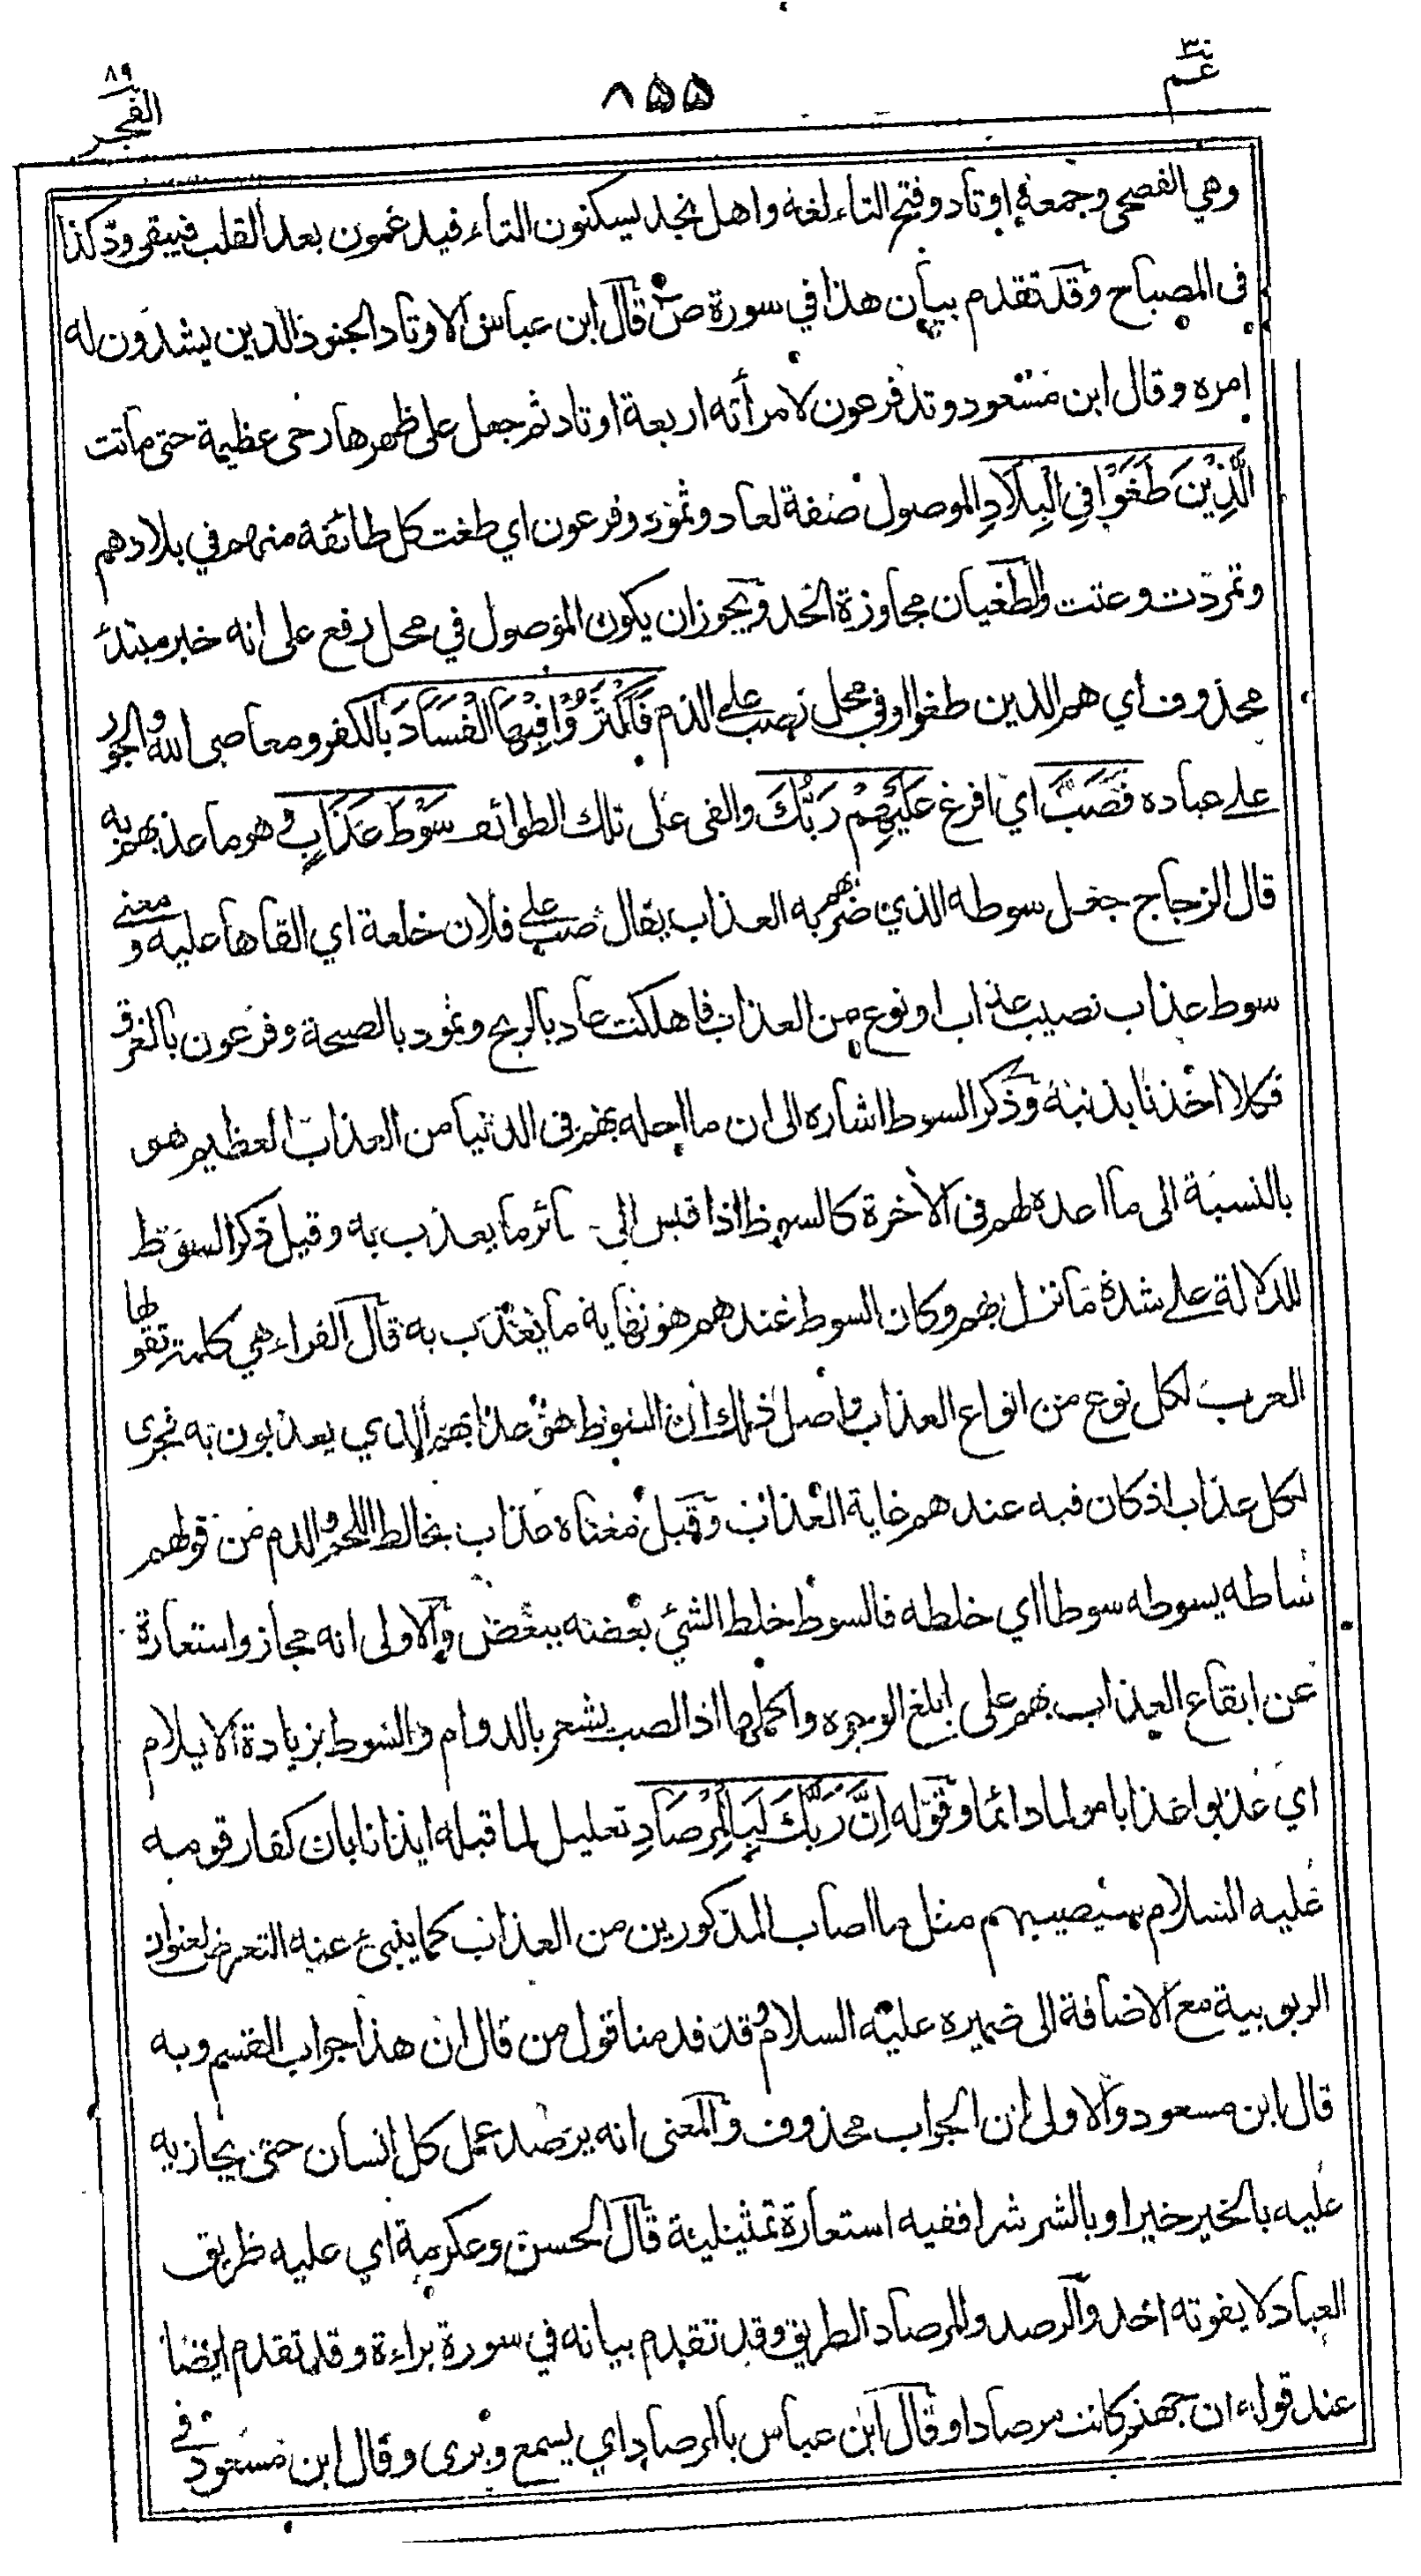 عم ٣٠
٨٥٥
الفجر ٨٩
وهي الفصحى وجمعه اوتاد وفتح التاء لغة واهل نجد يسكنون التاء فيدغمون بعد القلب فيبقى ودّ كذا
في المصباح وقد تقدم بيان هذا في سورة ص قال ابن عباس الاوتاد الجنود الذين يشدون له
امره وقال ابن مسعود وتد فرعون لامرأته اربعة اوتاد ثم جعل على ظهرها رحى عظيمة حتى ماتت
الَّذِيْنَ طَغَوْا فِي الْبِلَادِ الموصول صفة لعاد وثمود وفرعون اي طغت كل طائفة منهم في بلادهم
وتمردت وعتت والطغيان مجاوزة الحد ويجوز ان يكون الموصول في محل رفع على انه خبر مبتدئ
محذوف اي هم الذين طغوا او في محل نصب على الذم فَاَكْثَرُوْا فِيْهَا الْفَسَادَ بالكفر ومعاصي الله والجور
على عباده فَصَبَّ اي افرغ عَلَيْهِمْ رَبُّكَ والقى على تلك الطوائف سَوْطَ عَذَابٍ وهو ما عذبهم به
قال الزجاج جعل سوطه الذي ضربهم به العذاب يقال صب على فلان خلعة اي القاها عليه ومعنى
سوط عذاب نصيب عذاب او نوع من العذاب فاهلكت عاد بالريح وثمود بالصيحة وفرعون بالغرق
فكلا اخذنا بذنبه وذكر السوط اشاره الى ان ما احله بهم في الدنيا من العذاب العظيم هو
بالنسبة الى ما اعده لهم في الأخرة كالسوط اذا قيس الى سائر ما يعذب به وقيل ذكر السوط
للدلالة على شدة ما نزل بهم وكان السوط عندهم هو نهاية ما يعذب به قال الفراء هي كلمة تقولها
العرب لكل نوع من انواع العذاب واصل ذلك ان السوط هو عذابهم الذي يعذبون به فجرى
لكل عذاب اذ كان فيه عندهم غاية العذاب وقيل معناه عذاب يخالط اللحم والدم من قولهم
ساطه يسوطه سوطا اي خلطه فالسوط خلط الشيء بعضه ببعض والاولى انه مجاز واستعارة
عن ايقاع العذاب بهم على ابلغ الوجوه واكملها اذ الصب يشعر بالدوام والسوط بزيادة الايلام
اي عذبوا عذابا مولما دائما وقوله اِنَّ رَبَّكَ لَبِالْمِرْصَادِ تعليل لما قبله ايذانا بان كفار قومه
عليه السلام سيصيبهم مثل ما اصاب المذكورين من العذاب كما ينبئ عنه التعرض لعنوان
الربوبية مع الاضافة الى ضميره عليه السلام وقد قدمنا قول من قال ان هذا جواب القسم وبه
قال ابن مسعود والاولى ان الجواب محذوف والمعنى انه يرصد عمل كل انسان حتى يجازيه
عليه بالخير خيرا وبالشر شرا ففيه استعارة تمثيلية قال الحسن وعكرمة اي عليه طريق
العباد لا يفوته احد والرصد والمرصاد الطريق وقد تقدم بيانه في سورة براءة وقد تقدم ايضا
عند قوله ان جهنم كانت مرصادا وقال ابن عباس بالمرصاد اي يسمع ويرى وقال ابن مسعود في